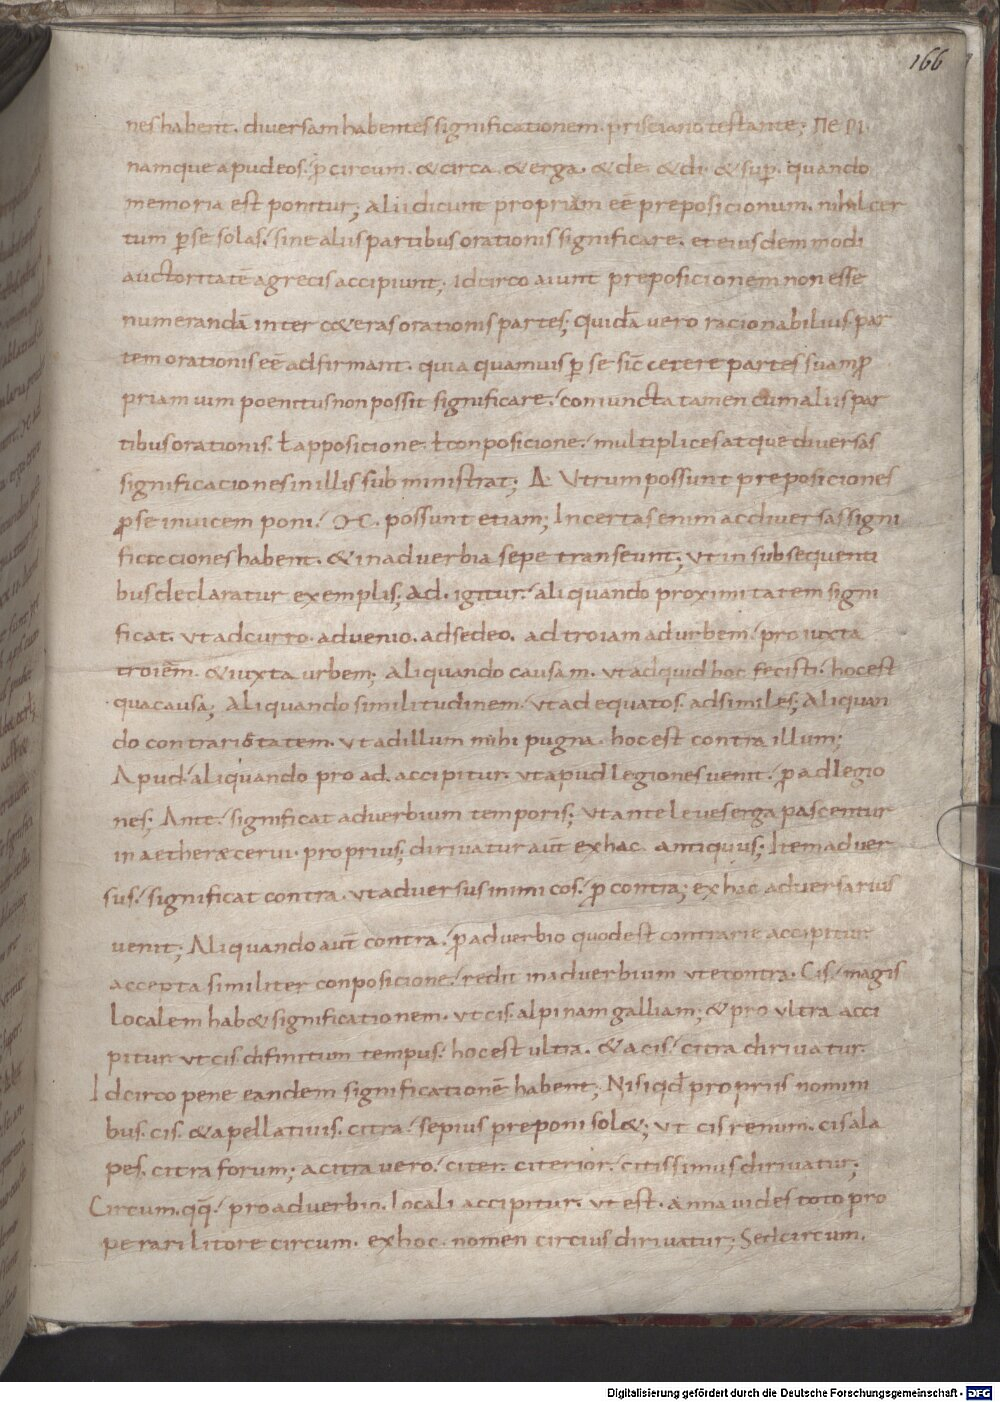 166
nes habent. diversam habentes significationem. prisciano testante; ΠΕΡΙ.
namque apud eos. p̄ circum. & circa. & erga. & de. & di. & sup̄. quando
memoria est ponitur; Alii dicunt propriam eē preposicionum. nihil cer
tum p̱ se solas. sine aliis partibus orationis significare. et eiusdem modi
auctoritatē a grecis accipiunt; Idcirco aiunt preposicionem non esse
numerandā inter c&eras orationis partes; Quidā vero racionabilius par
tem orationis eē adfirmant. quia quamvis p̱ se sic̄ cetere partes suam p̱
priam vim poenitus non possit significare. coniuncta tamen cum aliis par
tibus orationis. ł apposicione. ł conposicione. multiplices atque diversas
significaciones in illis subministrat; Δ Utrum possunt preposiciones
p̱ se invicem poni. M. possunt etiam; Incertas enim ac diversas signi
ficaciones habent. & in adverbia sepe transeunt; Ut in subsequenti
bus declaratur exemplis; Ad. igitur. aliquando proximitatem signi
ficat. ut adcurro. advenio. adsedeo. ad troiam ad urbem. pro iuxta
troiēm. & iuxta urbem; Aliquando causam. ut ad quid hoc fecisti. hoc est
qua causa; Aliquando similitudinem. ut adequatos. adsimiles; Aliquan
do contrarietatem. ut ad illum mihi pugna. hoc est contra illum;
Apud. aliquando pro ad. accipitur. ut apud legiones venit. p̄ ad legio
nes; Ante. significat adverbium temporis; Ut ante leves erga pascentur
in aetheræ cervi. proprius; dirivatur aut̄ ex hac antiquius; Item adver
sus. significat contra. ut adversus inimicos. p̄ contra; ex hac adversarius
venit; Aliquando aut̄ contra. p̄ adverbio quod est contrarie accipitur
accepta similiter conposicione. redit in adverbium ut econtra. Cis. magis
localem hab& significationem. ut cis. alpinam galliam; & pro ultra acci
pitur ut cis difinitum tempus. hoc est ultra. & a cis. citra dirivatur.
Idcirco pene eandem significationē habent; Nisi qd̄ propriis nomini
bus. cis. & apellativis. citra. sepius preponi sol&; ut cis renum. cis ala
pes. citra forum; a citra vero. citer. citerior. citissimus dirivatur;
Circum. qq̄. pro adverbio. locali accipitur. ut est. anna vides toto pro
perari litore circum. ex hoc. nomen circius dirivatur; Sed circum.
Digitalisierung gefördert durch die Deutsche Forschungsgemeinschaft - DFG